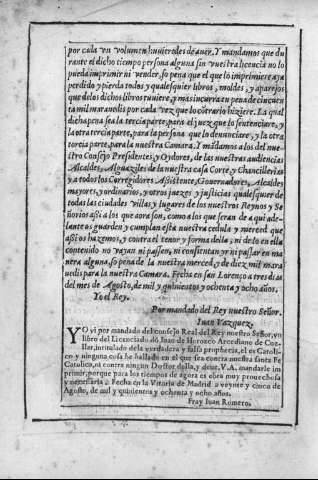 por cada vn volumen huuieredes de auer. Y mandamos que du
rante el dicho tiempo persona alguna sin vuestra licencia no lo
pueda imprimir ni vender, so pena que el que lo imprimiere aya
perdido y pierda todos y qualesquier libros, moldes, y aparejos
que de los dichos libros tuuiere, y mas incurra en pena de cincuen
ta mil marauedis por cada vez que lo contrario hiziere. La qual
dicha pena sea la tercia parte, para el juez que lo sentenciare, y
la otra tercia parte, para la persona que lo denunciare, y la otra
tercia parte, para la nuestra Camara. Y mãdamos a los del nue-
stro Consejo Presidentes, y Oydores, de las nuestras audiencias
Alcaldes, Alguaziles de la nuestra casa Corte, y Chancillerias
y a todos los Corregidores Assistente, Gouernadores, Alcaldes
mayores, y ordinarios, y otros juezes y justicias qualesquier de
todas las ciudades villas y lugares de los nuestros Reynos y Se
ñorios assi a los que aora son, como a los que seran de aqui ade-
lante os guarden y cumplan esta nuestra cedula y merced que
assi os hazemos, y contra el tenor y forma della, ni de lo en ella
contenido no vayan ni passen, ni consientan yr ni passar en ma
nera alguna, so pena de la nuestra merced, y de diez mil mara
uedis para la nuestra Camara. Fecha en san Lorenço a tres dias
del mes de Agosto, de mil y quinientos y ochenta y ocho años.
Yo el Rey.
Por mandado del Rey nuestro Señor.
Iuan Vazquez.
YO vi por mandado del consejo Real del Rey nuestro Señor, vn
libro del Licenciado dõ Iuan de Horozco Arcediano de Cue-
llar, intitulado de la verdadera y falsa prophecia, el es Catoli-
co y ninguna cosa he hallado en el que sea contra nuestra santa Fe
Catolica, ni contra ningun Doctor della, y deue, V.A. mandarle im
primir, porque para los tiempos de agora es obra muy prouechosa
y necessaria. Fecha en la Vitoria de Madrid a veynte y cinco de
Agosto, de mil y quinientos y ochenta y ocho años.
Fray Iuan Romero.